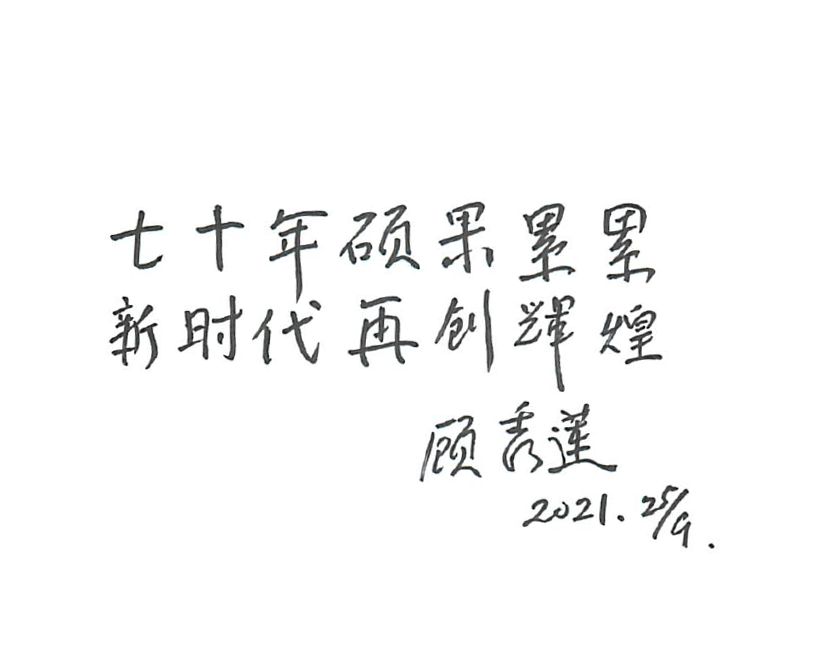 七十年硕果累累
新时代再创辉煌
顾秀莲
2021. 25/9.